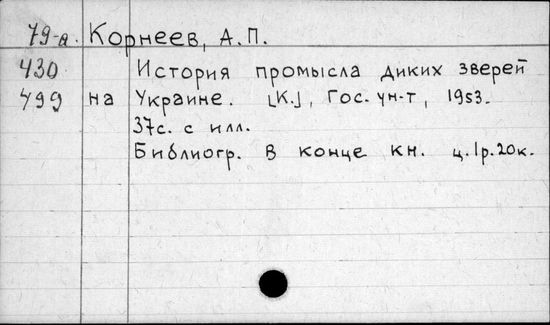 79-а. Корнеев, А.П.
430 История промысла диких зверей
499 на Украине. [К.], Гос. ун-т, 1953.
37с. с илл.
Библиогр. в конце кн. ц.1р.20к.